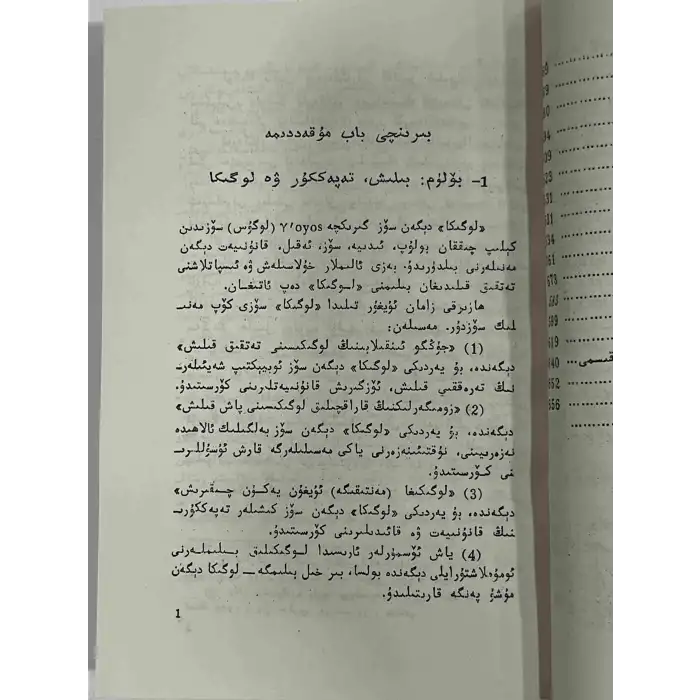 بىرىنچى باب مۇقەددىمە
1- بۆلۈم: بىلىش، تەپەككۈر ۋە لوگىكا
«لوگىكا» دېگەن سۆز گىرىكچە γ'oyos (لوگۇس) سۆزىدىن
كېلىپ چىققان بولۇپ، ئىدىيە، سۆز، ئەقىل، قانۇنىيەت دېگەن
مەنىلەرنى بىلدۈرىدۇ. بەزى ئالىملار خۇلاسىلەش ۋە ئىسپاتلاشنى
تەتقىق قىلىدىغان بىلىمنى «لوگىكا» دەپ ئاتىغان.
ھازىرقى زامان ئۇيغۇر تىلىدا «لوگىكا» سۆزى كۆپ مەنى‍
لىك سۆزدۇر. مەسىلەن:
(1) «جۇڭگو ئىنقىلابىنىڭ لوگىكىسىنى تەتقىق قىلىش»
دېگەندە، بۇ يەردىكى «لوگىكا» دېگەن سۆز ئوبيېكتىپ شەيئىلەر‍
نىڭ تەرەققىي قىلىش، ئۆزگىرىش قانۇنىيەتلىرىنى كۆرسىتىدۇ.
(2) «زومىگەرلىكنىڭ قاراقچىلىق لوگىكىسىنى پاش قىلىش»
دېگەندە، بۇ يەردىكى «لوگىكا» دېگەن سۆز بەلگىلىك ئالاھىدە
نەزەرىيىنى، نۇقتىئىنەزەرنى ياكى مەسىلىلەرگە قاراش ئۇسۇللىرى‍
نى كۆرسىتىدۇ.
(3) «لوگىكىغا (مەنتىقىگە) ئۇيغۇن يەكۈن چىقىرىش»
دېگەندە، بۇ يەردىكى «لوگىكا» دېگەن سۆز كىشىلەر تەپەككۇرى‍
نىڭ قانۇنىيەت ۋە قائىدىلىرىنى كۆرسىتىدۇ.
(4) ياش ئۆسمۈرلەر ئارىسىدا لوگىكىلىق بىلىملەرنى
ئومۇملاشتۇرايلى دېگەندە بولسا، بىر خىل بىلىمگە — لوگىكا دېگەن
مۇشۇ پەنگە قارىتىلىدۇ.
1